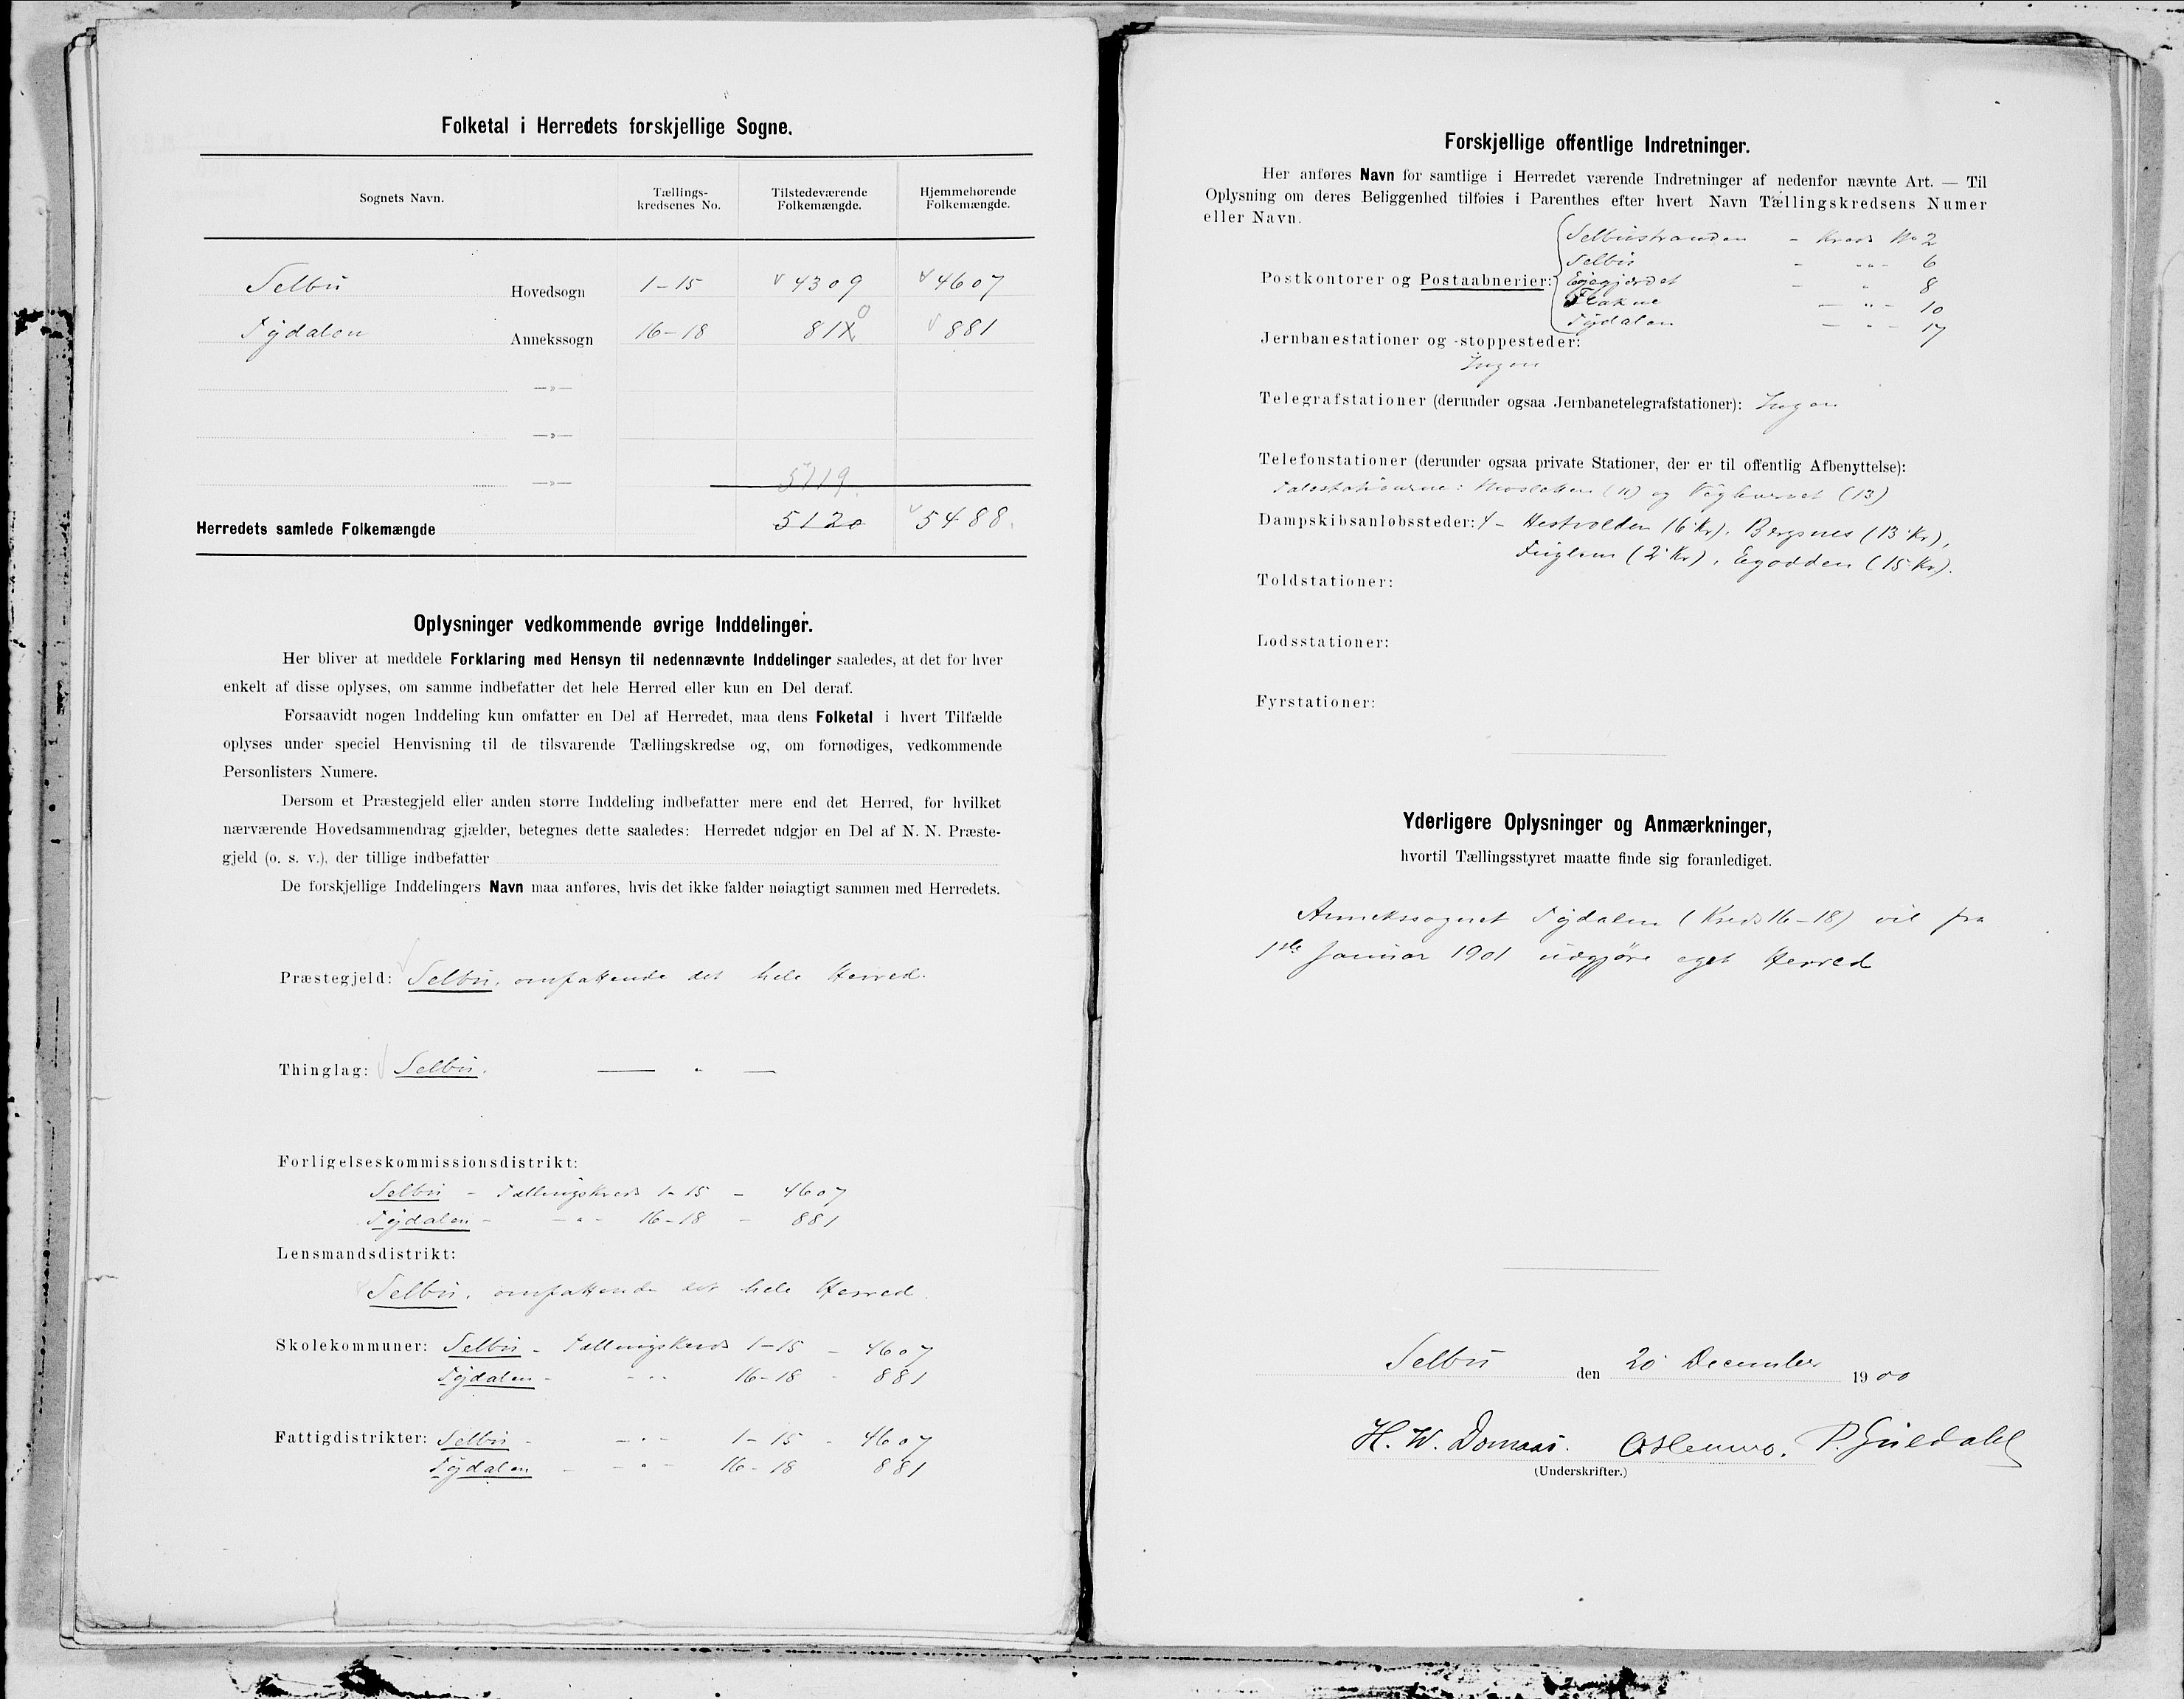 Folketal i Herredets forskjellige Sogne.
Sognets Navn. Tællings-kredsenes No. Tilstedeværende Folkemængde. Hjemmehørende Folkemængde.
Selbu Hovedsogn 1-15 4309 4607
Tydalen Annekssogn 16-18 81X 0 881
—»—
—»—
—»— 5119
Herredets samlede Folkemængde 5120 5488.
Oplysninger vedkommende øvrige Inddelinger.
Her bliver at meddele Forklaring med Hensyn til nedennævnte Inddelinger saaledes, at det for hver
enkelt af disse oplyses, om samme indbefatter det hele Herred eller kun en Del deraf.
Forsaavidt nogen Inddeling kun omfatter en Del af Herredet, maa dens Folketal i hvert Tilfælde
oplyses under speciel Henvisning til de tilsvarende Tællingskredse og, om fornødiges, vedkommende
Personlisters Numere.
Dersom et Præstegjeld eller anden større Inddeling indbefatter mere end det Herred, for hvilket
nærværende Hovedsammendrag gjælder, betegnes dette saaledes: Herredet udgjør en Del af N. N. Præste-
gjeld (o. s. v.), der tillige indbefatter
De forskjellige Inddelingers Navn maa anføres, hvis det ikke falder nøiagtigt sammen med Herredets.
Præstegjeld: Selbu, omfattende det hele Herred.
Thinglag: Selbu. — " —
Forligelseskommissionsdistrikt:
Selbu - Tællingskreds 1-15 - 4607
Tydalen - - " - 16-18 - 881
Lensmandsdistrikt:
Selbu, omfattende det hele Herred.
Skolekommuner: Selbu - Tællingskreds 1-15 - 4607
Tydalen - - " - 16-18 - 881
Fattigdistrikter: Selbu - - " - 1-15 - 4607
Tydalen - - " - 16-18 881
Forskjellige offentlige Indretninger.
Her anføres Navn for samtlige i Herredet værende Indretninger af nedenfor nævnte Art. — Til
Oplysning om deres Beliggenhed tilføies i Parenthes efter hvert Navn Tællingskredsens Numer
eller Navn.
Selbustranden - Kreds No 2
Selbu - " - 6
Postkontorer og Postaabnerier: Eggjerdet - " 8
Flakne - " - 10
Tydalen - " - 17
Jernbanestationer og -stoppesteder:
Ingen
Telegrafstationer (derunder ogsaa Jernbanetelegrafstationer): Ingen
Telefonstationer (derunder ogsaa private Stationer, der er til offentlig Afbenyttelse):
Talestationerne: Mosletten (11) og Vighammet (13)
Dampskibsanløbssteder: 4 - Hestvolden (6 Kr), Bergsnes (13 Kr),
Fuglem (2 Kr), Egodden (15 Kr).
Toldstationer:
Lodsstationer:
Fyrstationer:
Yderligere Oplysninger og Anmærkninger,
hvortil Tællingsstyret maatte finde sig foranlediget.
Annekssognet Tydalen (Kreds 16-18) vil fra
1ste Januar 1901 udgjøre eget Herred
Selbu den 20 December 1900
H. W. Domaas.
(Underskrifter.)